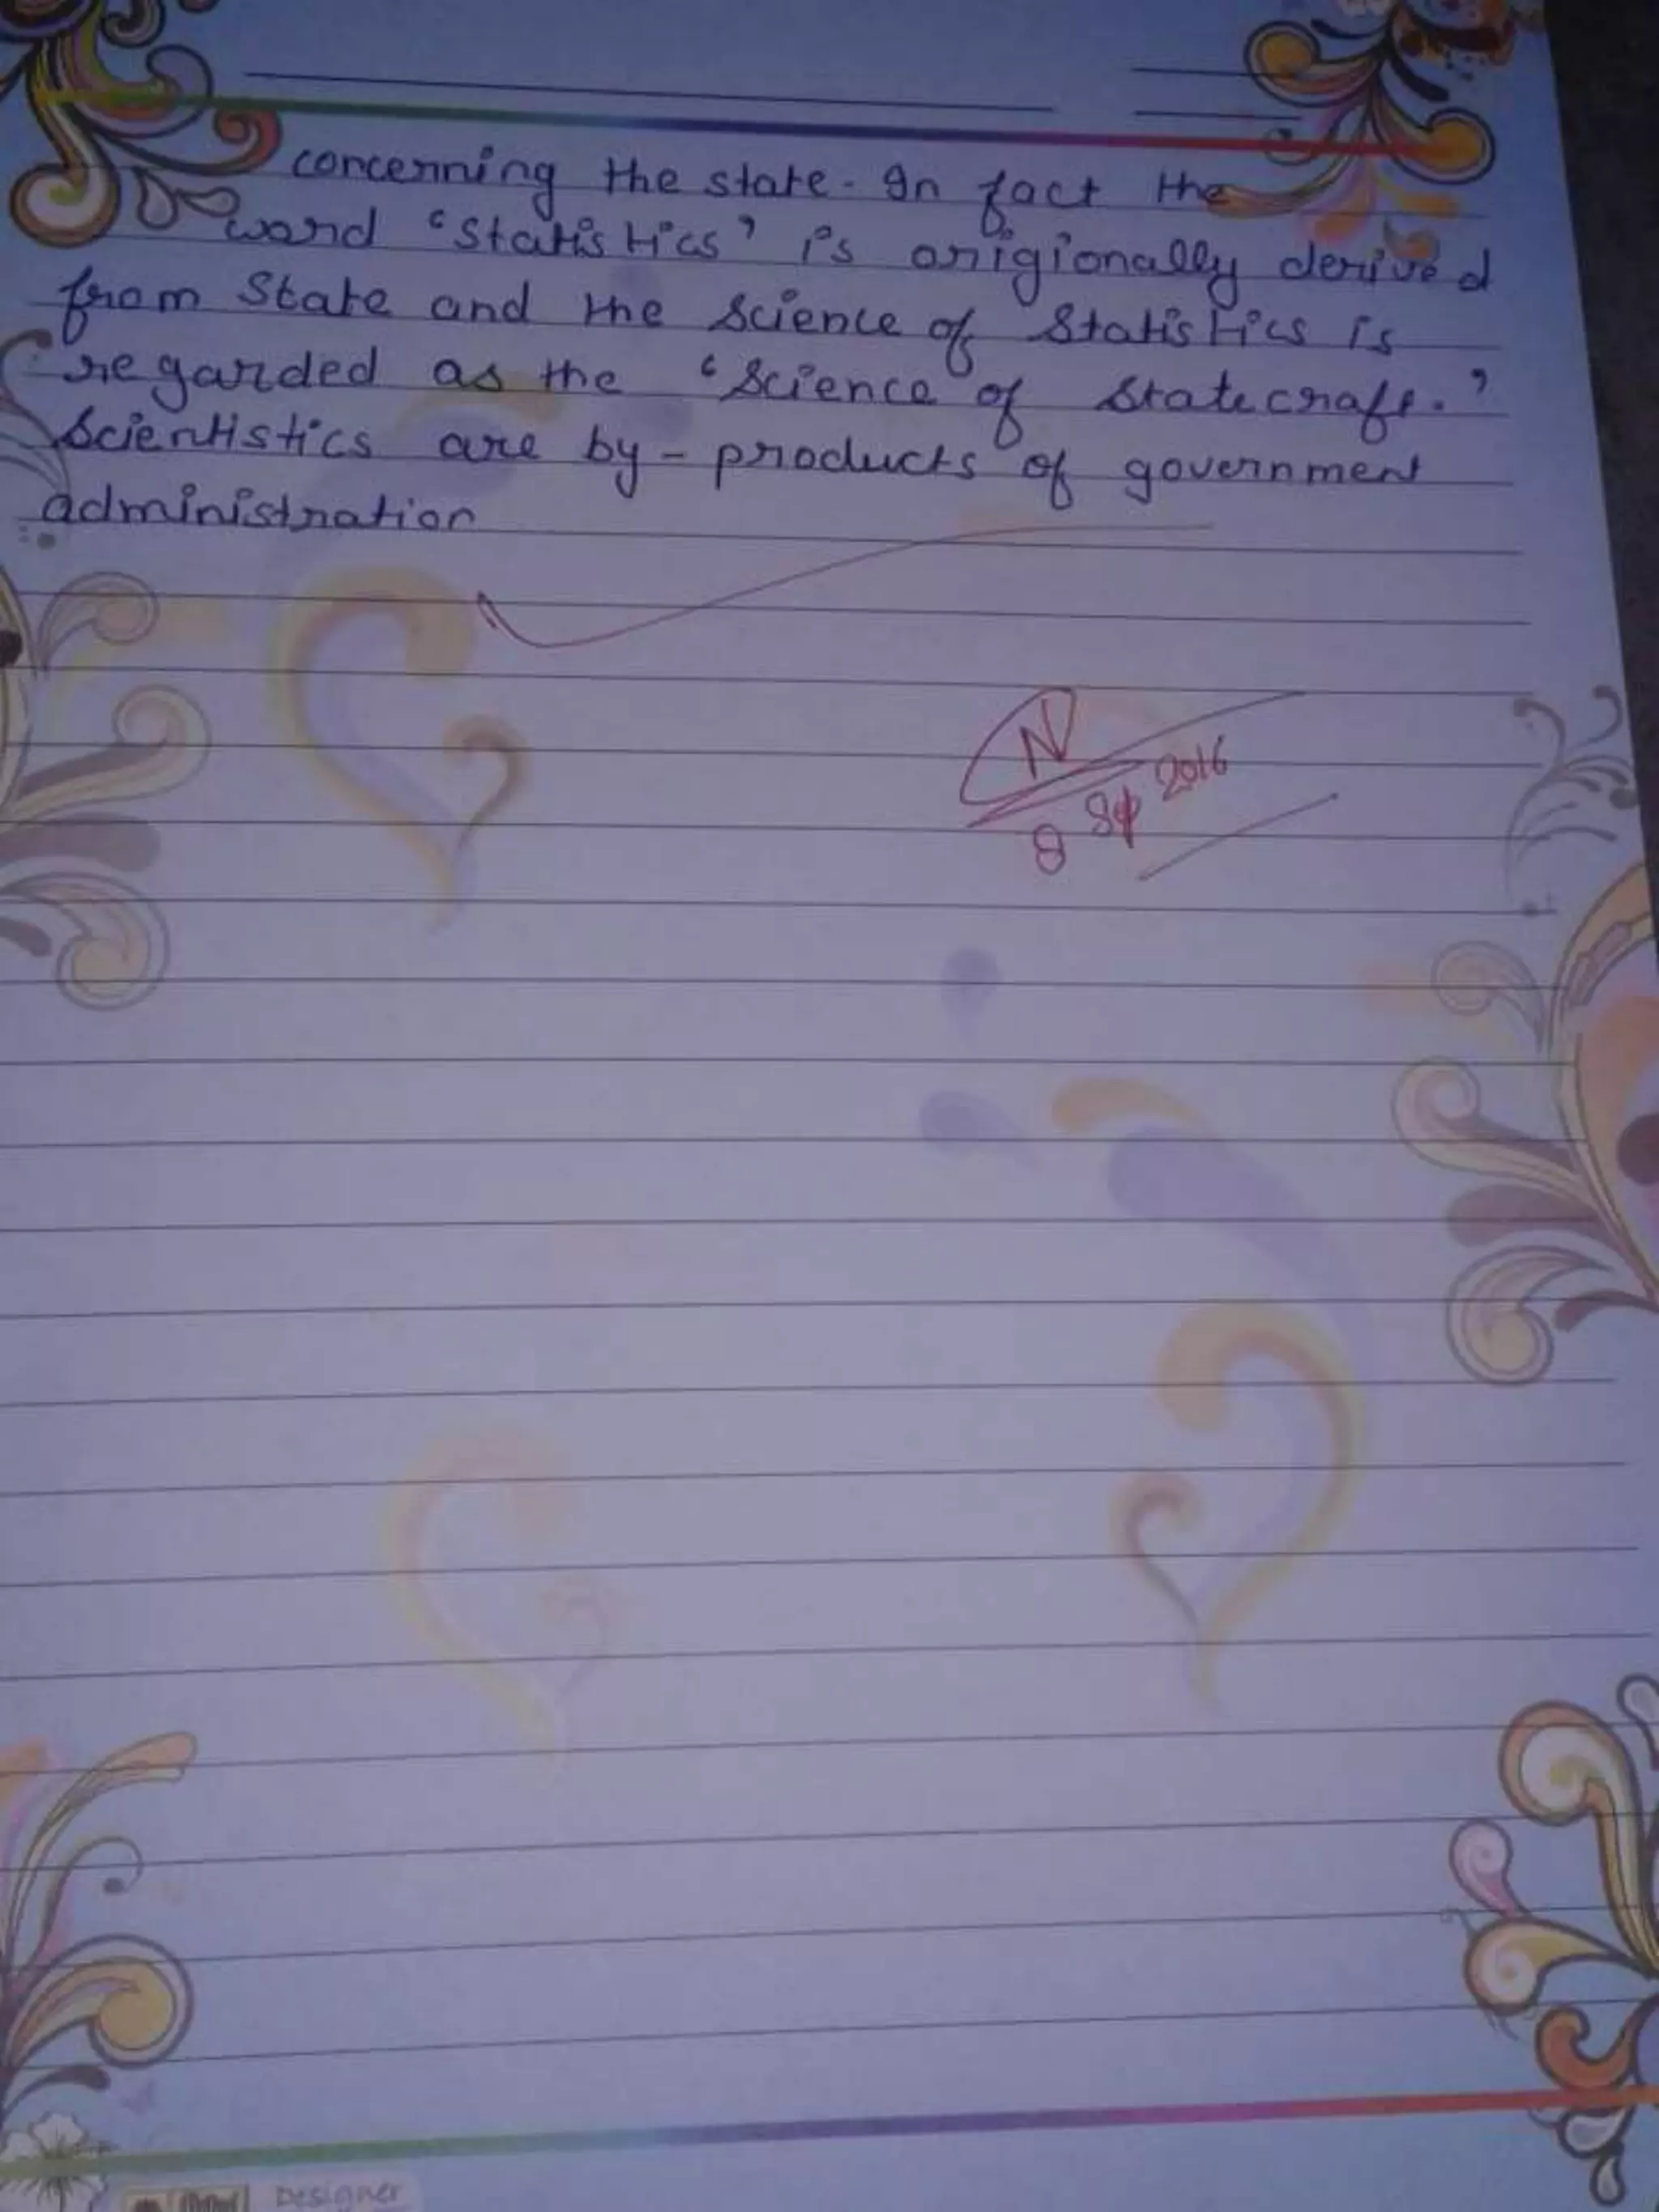 concerning the state. In fact the
word 'Statistics' is origionally derived
from State and the Science of Statistics is
regarded as the 'Science of Statecraft.'
Scientistics are by-products of government
administration
N
8 Sep 2016
Designer